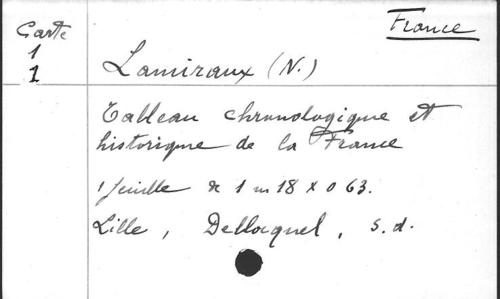 Carte
1
1
France
Lamiraux (N.)
Tableau chronologique et
historique de la France
1 feuille de 1 m 18 x 0 63.
Lille, Dellocquel, s.d.